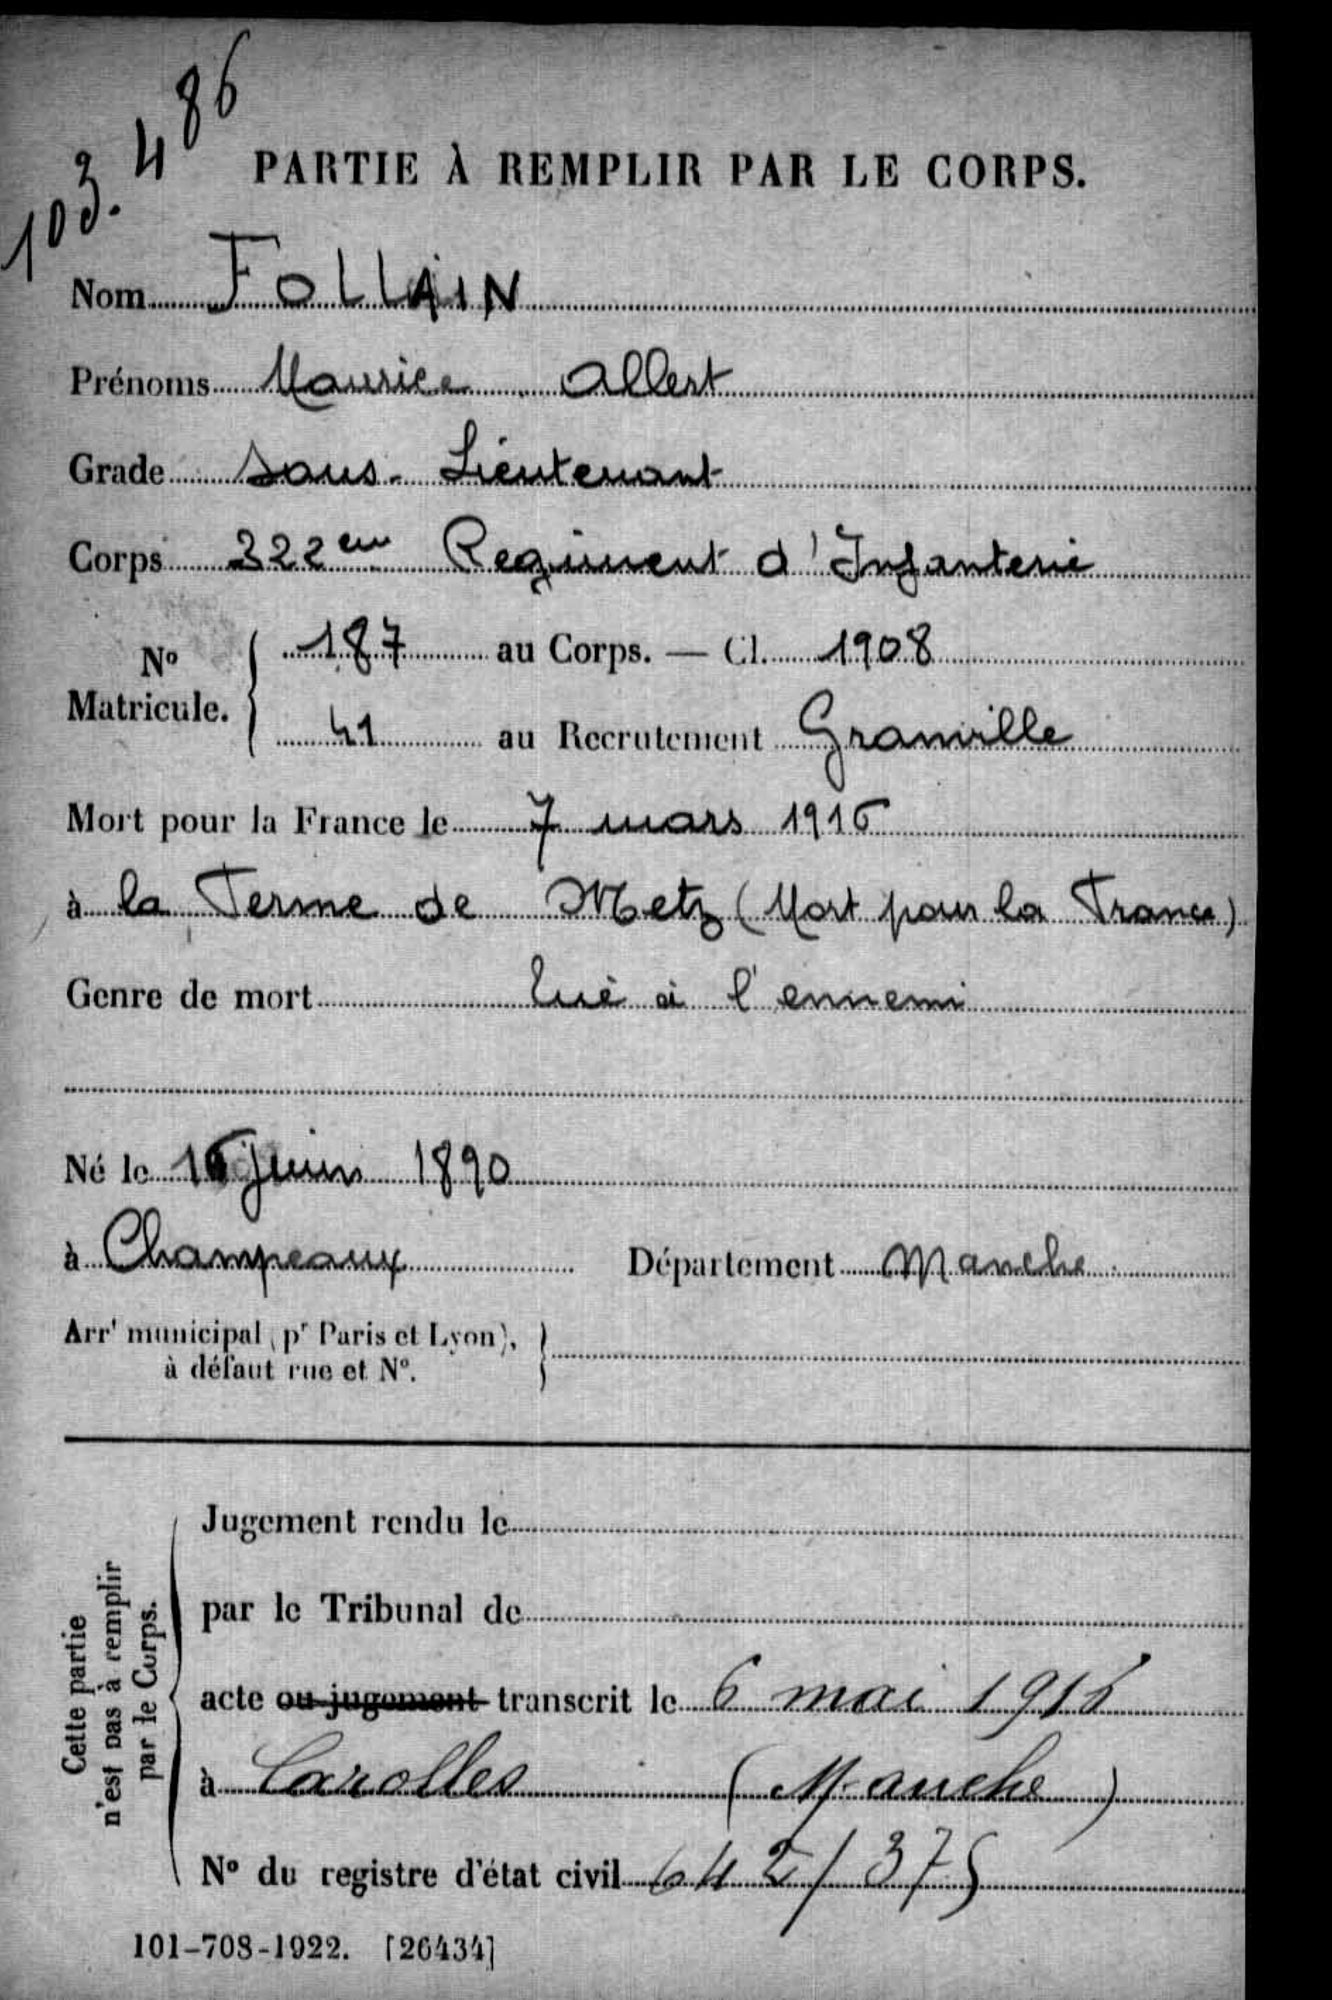 103.486
PARTIE À REMPLIR PAR LE CORPS.
Nom FOLLAIN
Prénoms Maurice Albert
Grade Sous-Lieutenant
Corps 322em Regiment d'Infanterie
No Matricule. 187 au Corps. — Cl. 1908
41 au Recrutement Granville
Mort pour la France le 7 mars 1916
à la Ferme de Metz (Mort pour la France)
Genre de mort Tué à l'ennemi
Né le 16 Juin 1890
à Champeaux Département Manche
Arrt municipal (pr Paris et Lyon),
à défaut rue et No.
Cette partie
n'est pas à remplir
par le Corps.
Jugement rendu le
par le Tribunal de
acte ou jugement transcrit le 6 mai 1916
à Carolles (Manche)
No du registre d'état civil 642/375
101-708-1922. [26434]